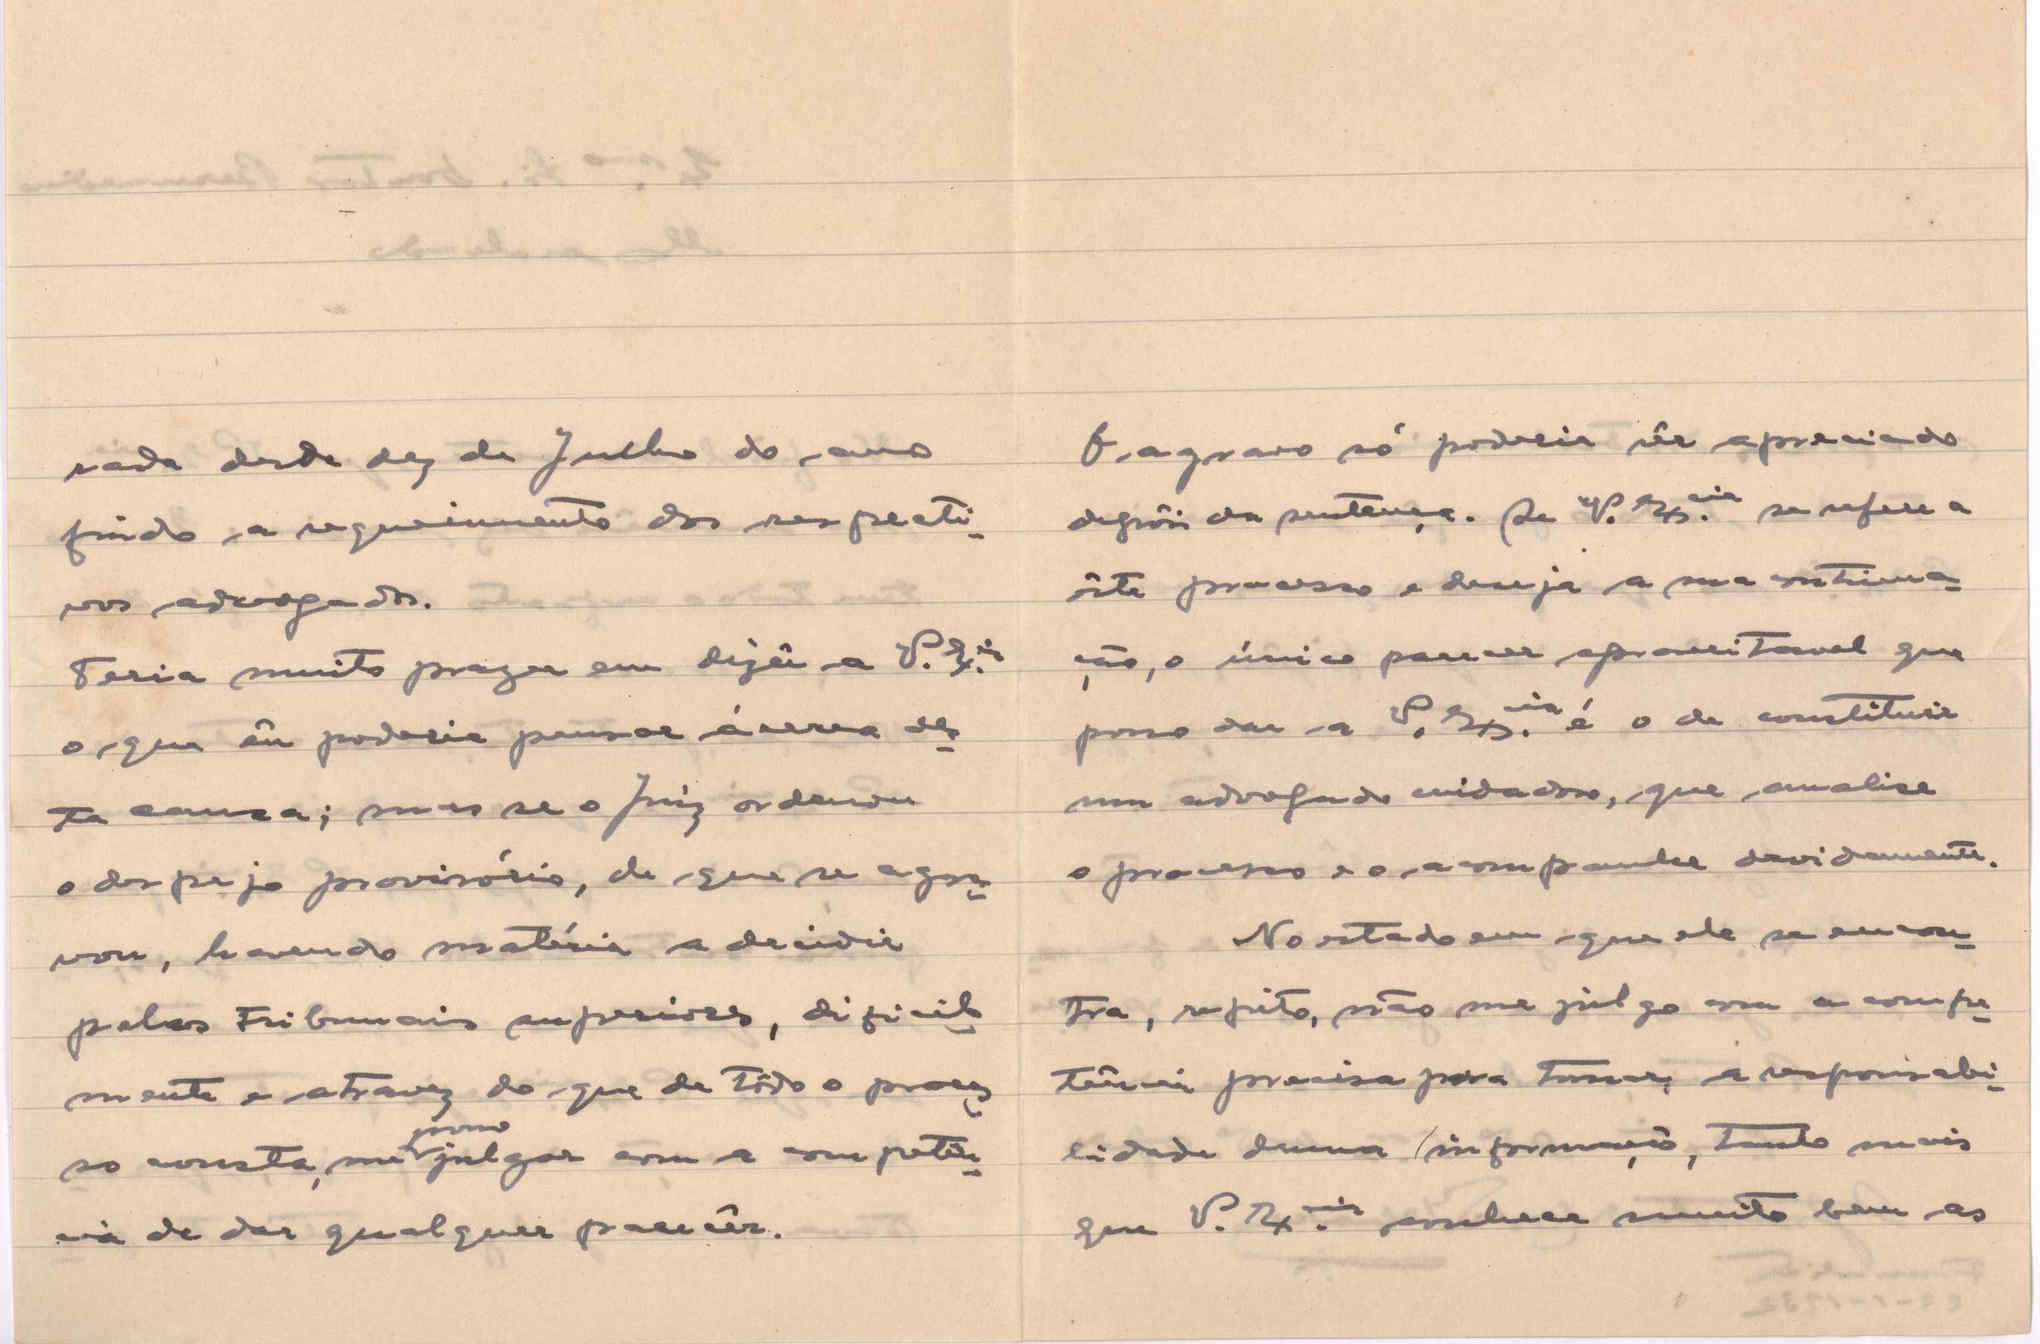 rada desde dez de Julho do ano
findo a requerimento dos respecti-
vos advogados.
Teria muito prazer em dizêr a V. Ex.cia
o que êu poderia pensar ácerca dês-
ta causa; mas se o Juiz ordenou
o despejo provisório, de que se agra-
vou, havendo matéria a decidir
pelos Tribunais superiores, dificil-
mente e atravez do que de tôdo o proces-
so consta, me posso julgar com a competên-
cia de dar qualquer parecêr.
O agravo só poderia sêr apreciado
depois da sentença. Se V. Ex.cia se refere a
êste processo e deseja a sua continua-
ção, o único parecer aproveitavel que
posso dar a V. Ex.cia é o de constituir
um advogado cuidadoso, que analise
o processo e o acompanhe devidamente.
No estado em que ele se encon-
tra, repito, não me julgo com a compe-
tência precisa para tomar a responsabi-
lidade duma informação, tanto mais
que V. Ex.cia conhece muito bem as